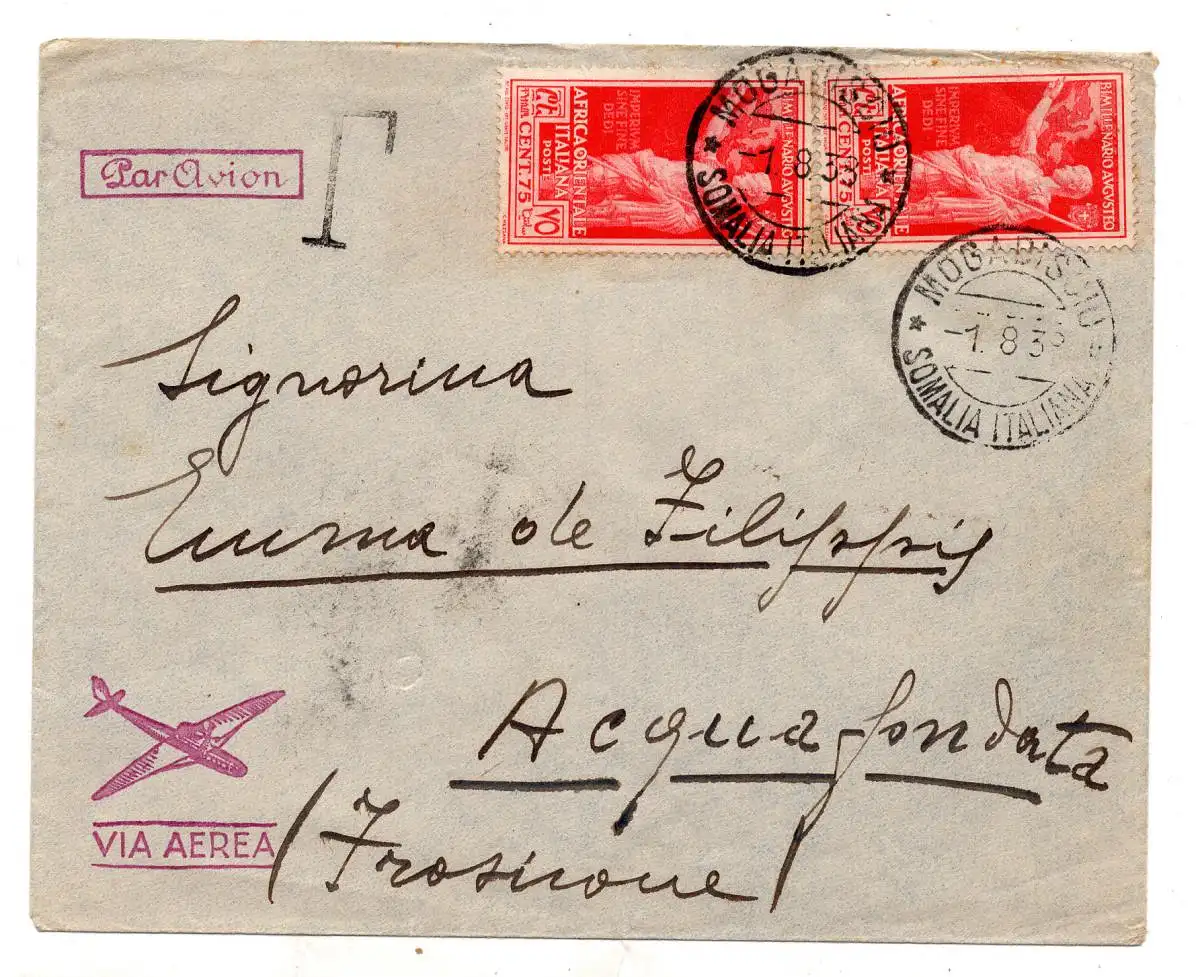 Par Avion
T
BIMILLENARIO AVGVSTEO
IMPERIVM
SINE FINE
DEDI
AFRICA ORIENTALE
ITALIANA
POSTE
CENT. 75
BIMILLENARIO AVGVSTEO
IMPERIVM
SINE FINE
DEDI
AFRICA ORIENTALE
ITALIANA
POSTE
CENT. 75
MOGADISCIO
-1.8.38
SOMALIA ITALIANA
MOGADISCIO
-1.8.38
SOMALIA ITALIANA
Signorina
Emma de Filippis
Acquafondata
(Frosinone)
VIA AEREA